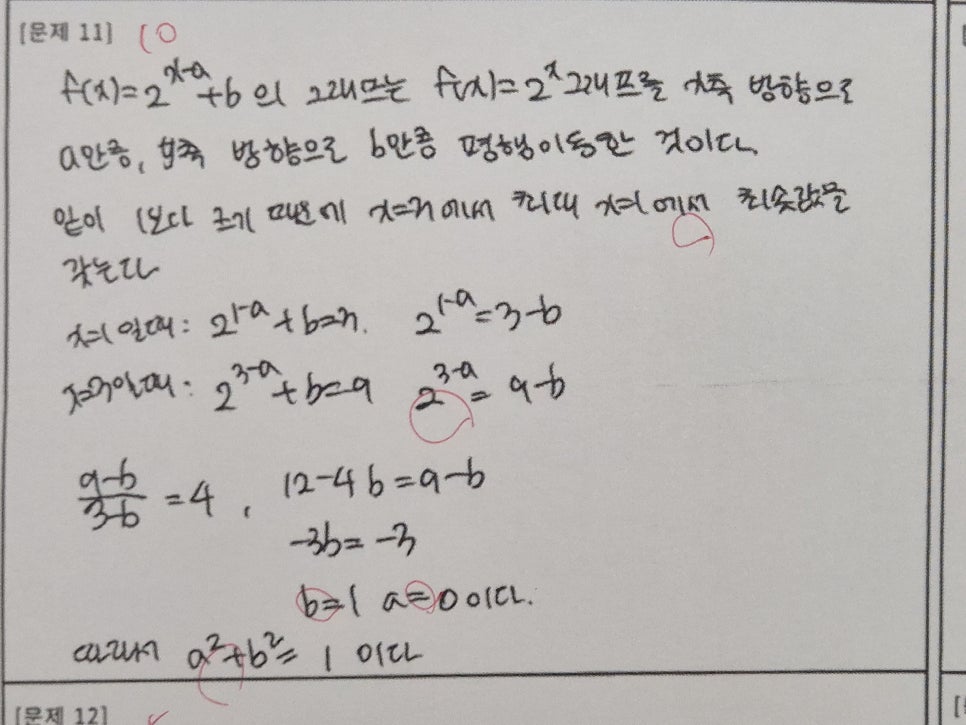 [문제 11] 10
f(x)=2^{x-a}+b 의 그래프는 f(x)=2^x 그래프를 x축 방향으로
a만큼, y축 방향으로 b만큼 평행이동한 것이다.
밑이 1보다 크기 때문에 x=3에서 최대 x=1에서 최솟값을
갖는다
x=1일때: 2^{1-a}+b=3. 2^{1-a}=3-b
x=3일때: 2^{3-a}+b=9 2^{3-a}=9-b
\frac{9-b}{3-b}=4, 12-4b=9-b
-3b=-3
b=1 a=0이다.
따라서 a^2+b^2=1이다
[문제 12]